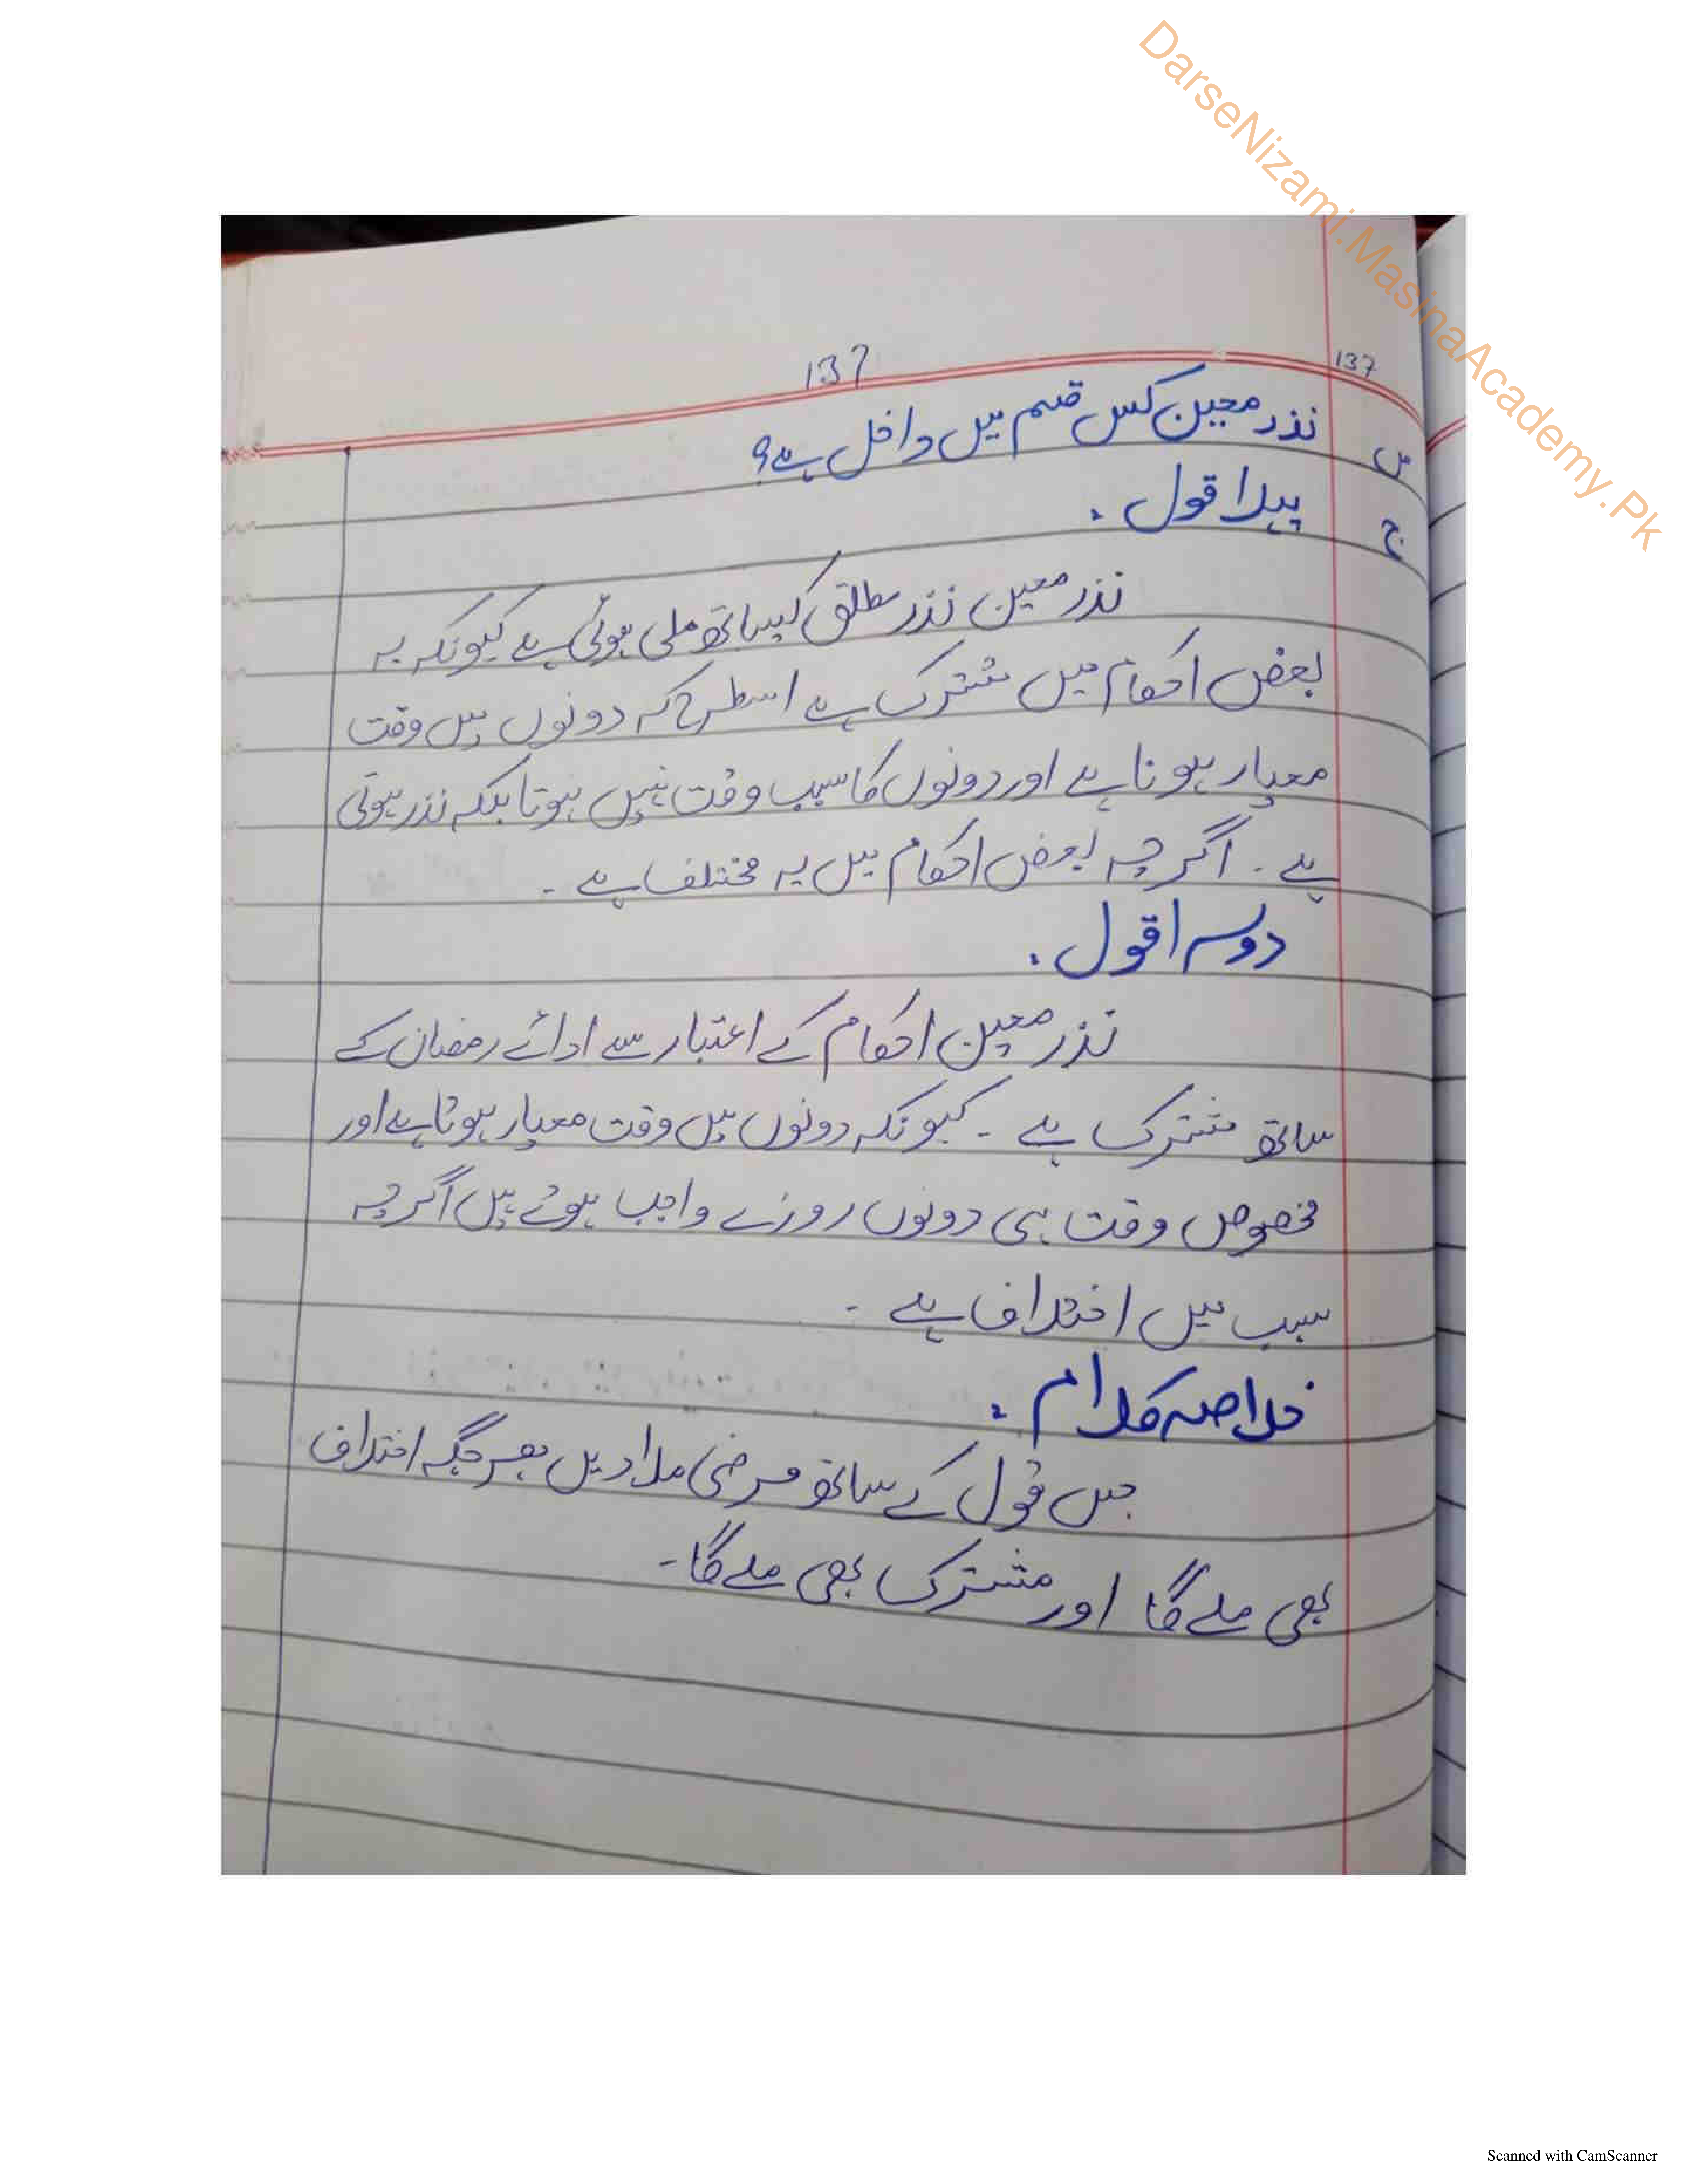 DarseNizami.MasinaAcademy.Pk
137
137
س نذر معین کس قسم میں داخل ہے؟
ج پہلا قول :
نذر معین نذر مطلق کیساتھ ملی ہوئی ہے کیونکہ یہ
بعض احکام میں مشترک ہے اسطرح کہ دونوں میں وقت
معیار ہوتا ہے اور دونوں کا سبب وقت نہیں ہوتا بلکہ نذر ہوتی
ہے ۔ اگرچہ بعض احکام میں یہ مختلف ہے ۔
دوسرا قول :
نذر معین احکام کے اعتبار سے ادائے رمضان کے
ساتھ مشترک ہے ۔ کیونکہ دونوں میں وقت معیار ہوتا ہے اور
مخصوص وقت ہی دونوں روزے واجب ہوئے ہیں اگرچہ
سبب میں اختلاف ہے ۔
خلاصہ کلام :
جس قول کے ساتھ مرضی ملا دیں ہر جگہ اختلاف
بھی ملے گا اور مشترک بھی ملے گا ۔
Scanned with CamScanner